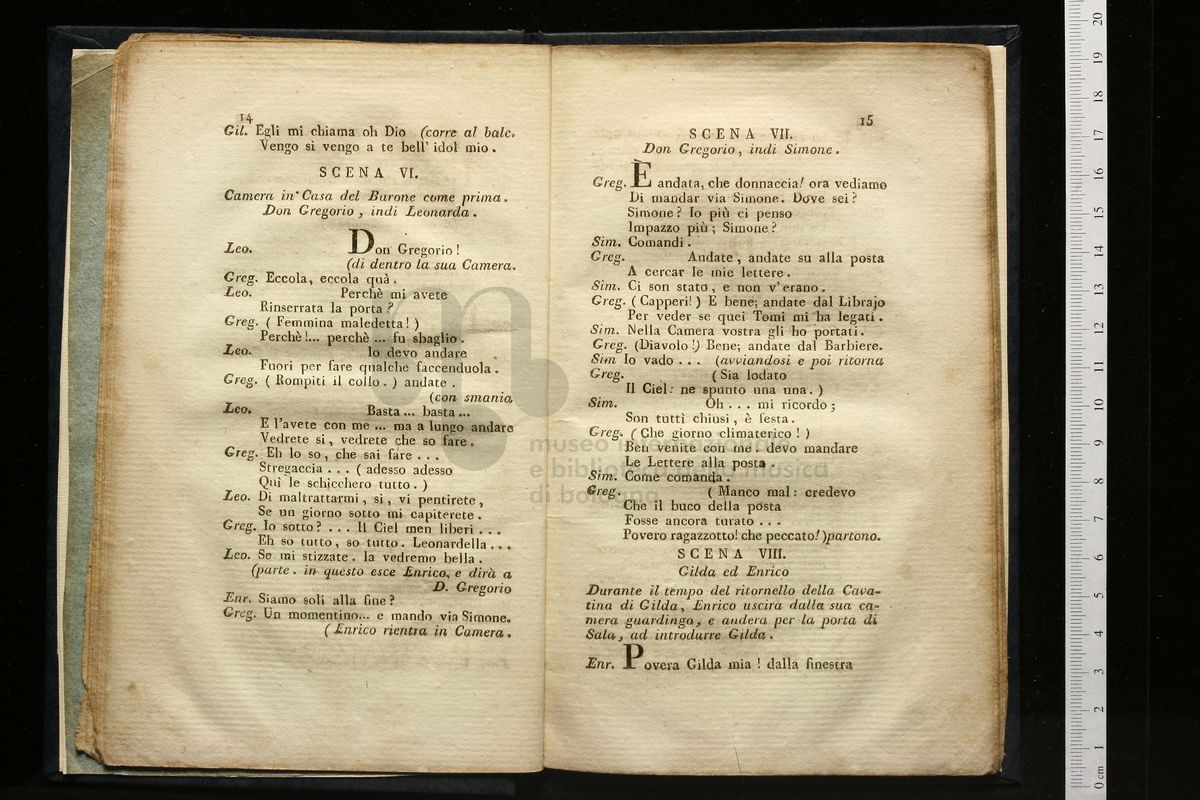 14
Gil. Egli mi chiama oh Dio (corre al balc.
Vengo si vengo a te bell' idol mio.
SCENA VI.
Camera in Casa del Barone come prima.
Don Gregorio, indi Leonarda.
Leo. Don Gregorio!
(di dentro la sua Camera.
Greg. Eccola, eccola quà.
Leo. Perchè mi avete
Rinserrata la porta?
Greg. (Femmina maledetta!)
Perchè!... perchè ... fu sbaglio.
Leo. Io devo andare
Fuori per fare qualche faccenduola.
Greg. (Rompiti il collo.) andate.
(con smania
Leo. Basta ... basta ...
E l'avete con me ... ma a lungo andare
Vedrete si, vedrete che so fare.
Greg. Eh lo so, che sai fare ...
Stregaccia ... (adesso adesso
Qui le schicchero tutto.)
Leo. Di maltrattarmi, si, vi pentirete,
Se un giorno sotto mi capiterete.
Greg. Io sotto? ... Il Ciel men liberi ...
Eh so tutto, so tutto. Leonardella ...
Leo. Se mi stizzate. la vedremo bella.
(parte. in questo esce Enrico, e dirà a
D. Gregorio
Enr. Siamo soli alla fine?
Greg. Un momentino... e mando via Simone.
(Enrico rientra in Camera.
15
SCENA VII.
Don Gregorio, indi Simone.
Greg. È andata, che donnaccia! ora vediamo
Di mandar via Simone. Dove sei?
Simone? Io più ci penso
Impazzo più; Simone?
Sim. Comandi.
Greg. Andate, andate su alla posta
A cercar le mie lettere.
Sim. Ci son stato, e non v'erano.
Greg. (Capperi!) E bene; andate dal Librajo
Per veder se quei Tomi mi ha legati.
Sim. Nella Camera vostra gli ho portati.
Greg. (Diavolo!) Bene; andate dal Barbiere.
Sim Io vado ... (avviandosi e poi ritorna
Greg. (Sia lodato
Il Ciel: ne spunto una una.)
Sim. Oh ... mi ricordo;
Son tutti chiusi, è festa.
Greg. (Che giorno climaterico!)
Ben venite con me. devo mandare
Le Lettere alla posta.
Sim. Come comanda.
Greg. (Manco mal: credevo
Che il buco della posta
Fosse ancora turato ...
Povero ragazzotto! che peccato!) partono.
SCENA VIII.
Gilda ed Enrico
Durante il tempo del ritornello della Cava-
tina di Gilda, Enrico uscirà dalla sua ca-
mera guardingo, e anderà per la porta di
Sala, ad introdurre Gilda.
Enr. Povera Gilda mia! dalla finestra
museo internazionale
e biblioteca della musica
di bologna
0 cm 1 2 3 4 5 6 7 8 9 10 11 12 13 14 15 16 17 18 19 20